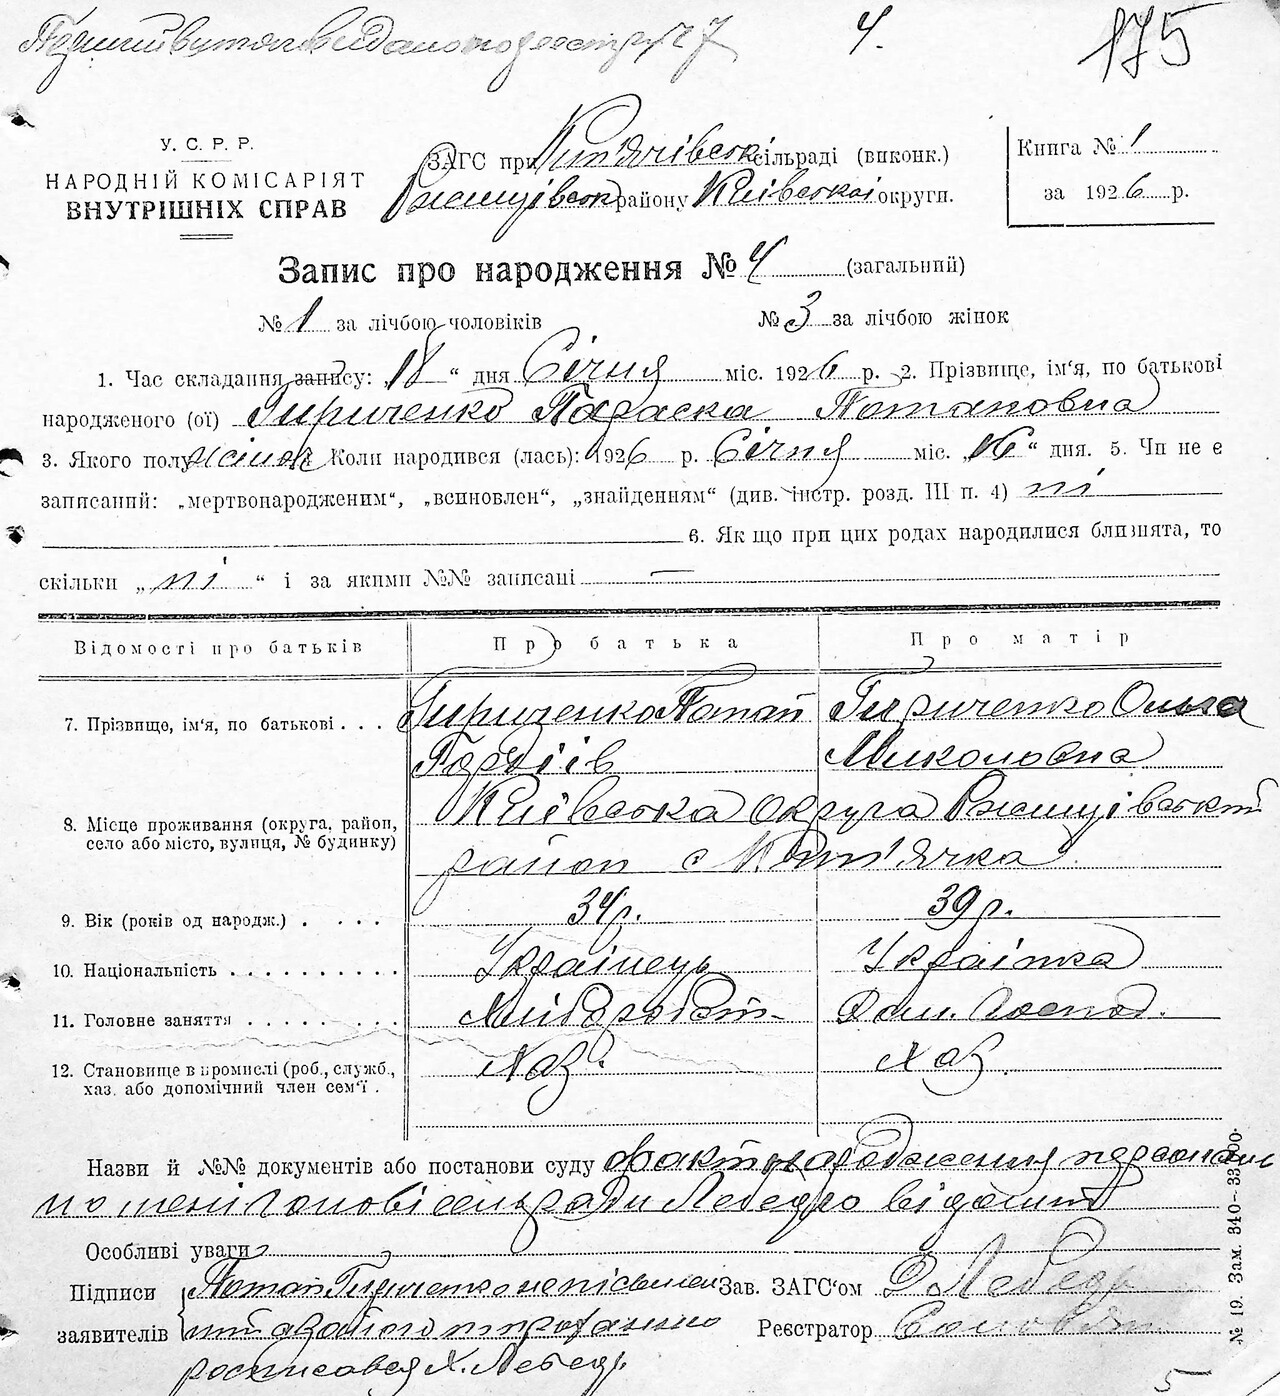 витяг видано по реєстру 27 4. 175
У. С. Р. Р.
НАРОДНІЙ КОМІСАРІЯТ
ВНУТРІШНІХ СПРАВ
ЗАГС при Кип'ячівськ сільраді (виконк.)
Ржищівськ району Київської округи.
Книга № 1
за 1926 р.
Запис про народження № 4 (загальний)
№ 1 за лічбою чоловіків № 3 за лічбою жінок
1. Час складання запису: 18 “ дня Січня міс. 1926 р. 2. Прізвище, ім‘я, по батькові
народженого (ої) Гириченко Параска Потаповна
3. Якого полу жіноч Коли народився (лась): 1926 р. Січня міс. „16“ дня. 5. Чи не є
записаний: „мертвонародженим“, „всиновлен“, „знайденням“ (див. інстр. розд. III п. 4) ні
6. Як що при цих родах народилися близнята, то
скільки „ ні “ і за якими №№ записані —
Відомості про батьків Про батька Про матір
7. Прізвище, ім‘я, по батькові . . . Гириченко Потап Гириченко Ольга
Гордіїв Миколовна
8. Місце проживання (округа, район, село або місто, вулиця, № будинку) Київська округа Ржищівський
район с Кип'ячка
9. Вік (років од народж.) . . . . 34 р. 39 р.
10. Національність . . . . . . . . . . Українець Українка
11. Головне заняття . . . . . . . . . Хліборобст- Дом. Господ.
12. Становище в промислі (роб., служб., Хаз. Хаз.
хаз. або допомічний член сем‘ї .
Назви й №№ документів або постанови суду факт народження персонально
мені голові сельради Лебедю відомий
Особливі уваги
Підписи Потап Гириченко неписьмен Зав. ЗАГС‘ом Д Лебедь
заявителів ний а за його проханню Реєстратор
росписався Х. Лебедь
№ 19. Зам. 340–33.000.
5